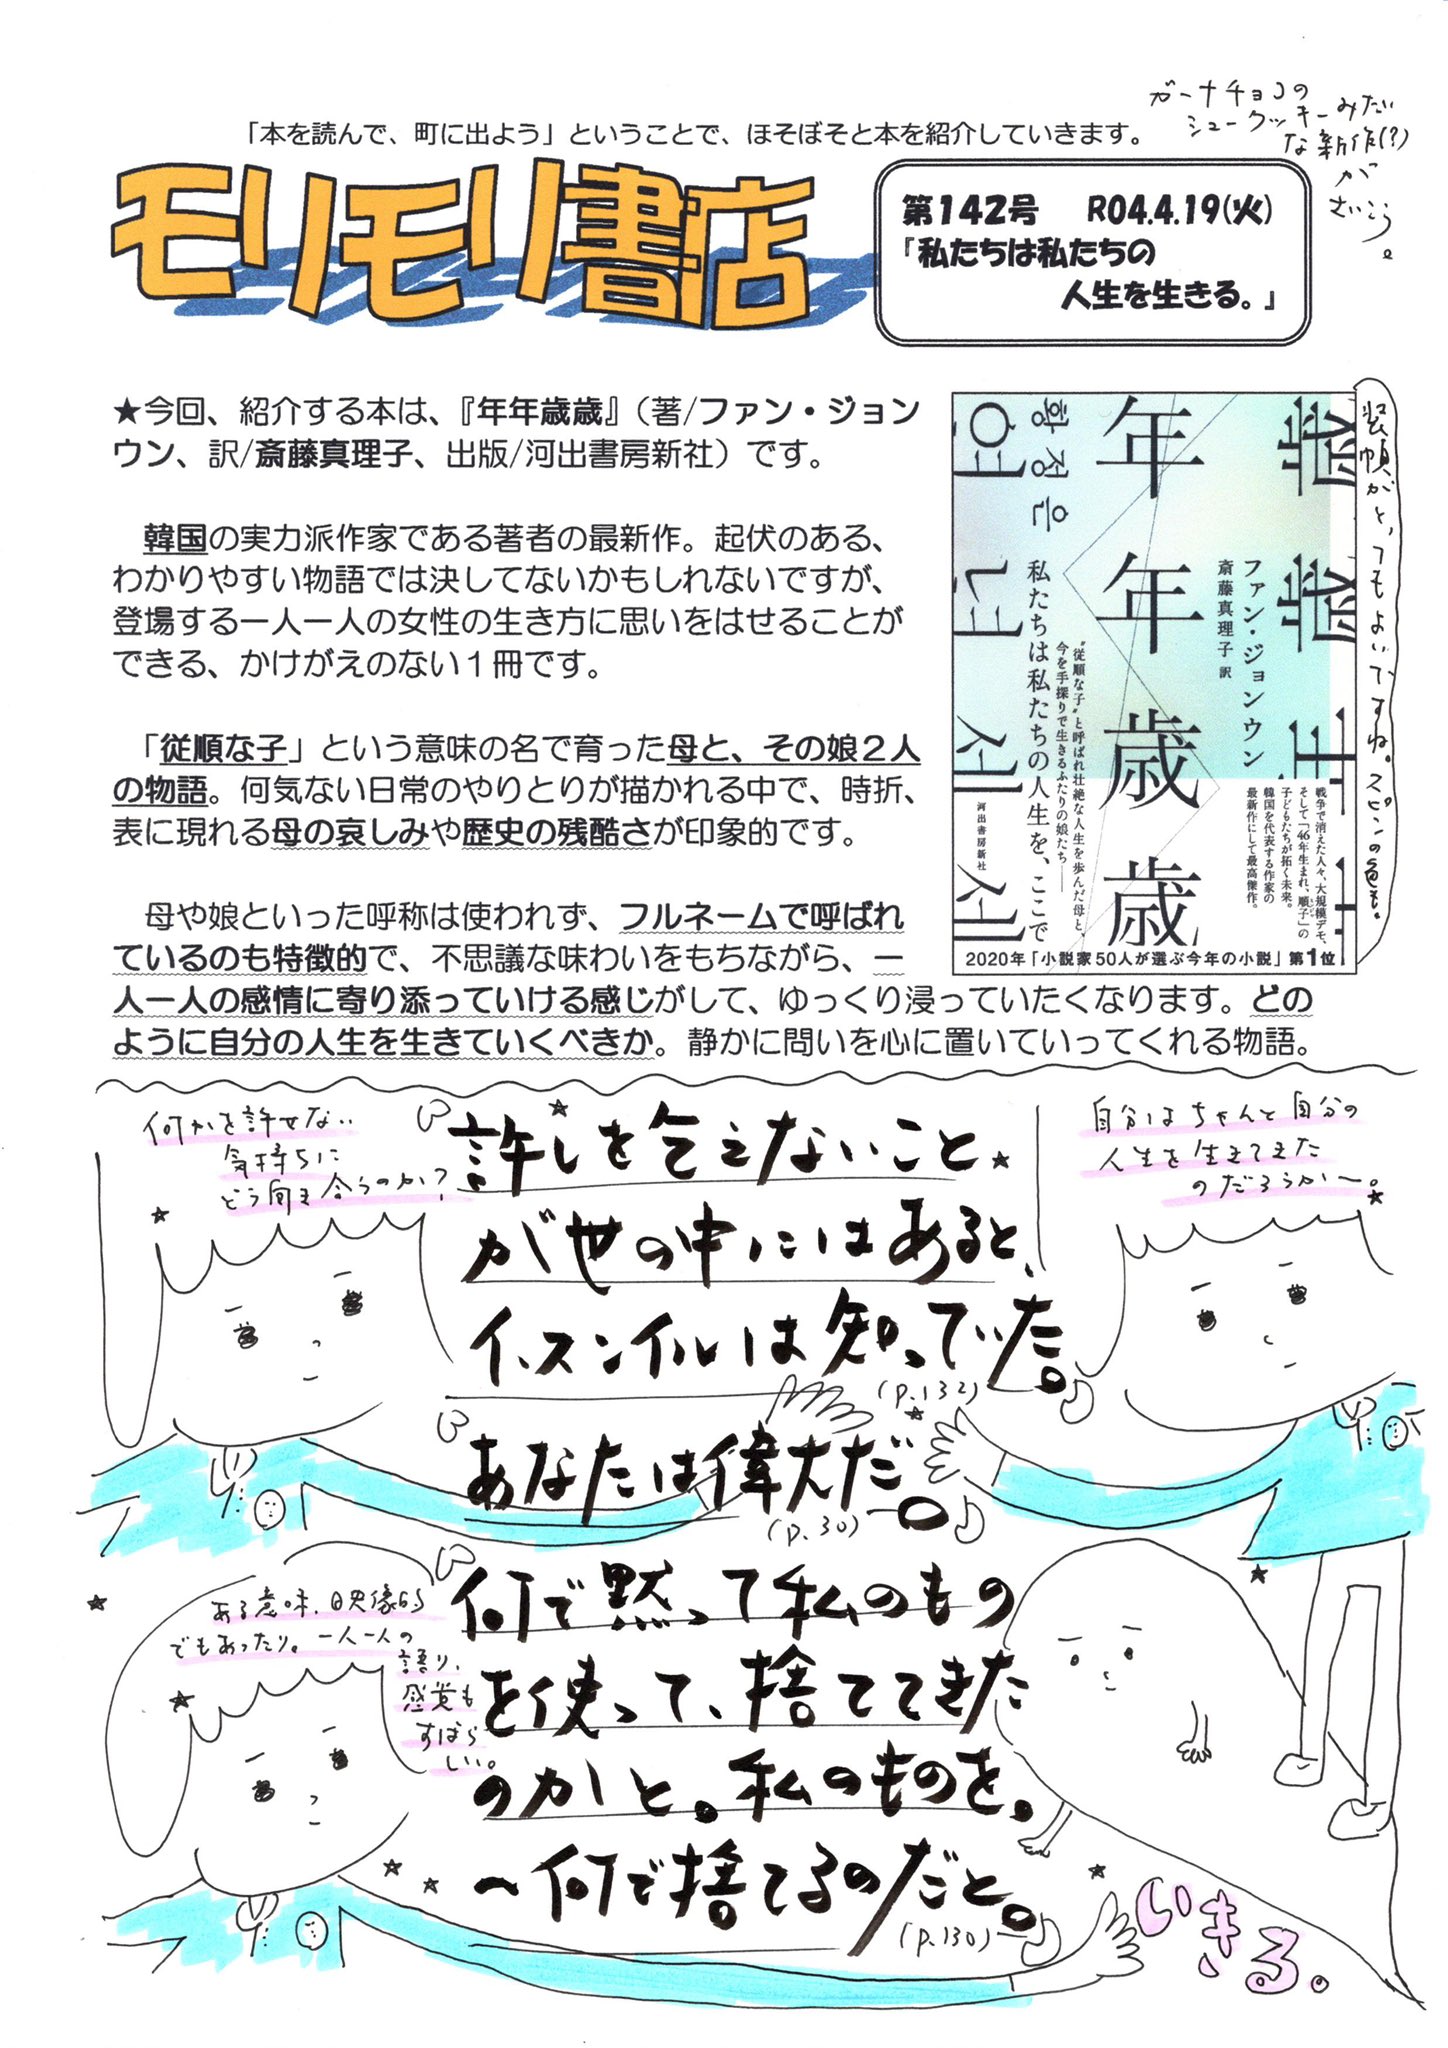 ガーナチョコの
シュークッキーみたい
な新作(?)
が
さいこう。
「本を読んで、町に出よう」ということで、ほそぼそと本を紹介していきます。
モリモリ書店
第142号 R04.4.19(火)
『私たちは私たちの
人生を生きる。』
★今回、紹介する本は、『年年歳歳』(著/ファン・ジョン
ウン、訳/斎藤真理子、出版/河出書房新社)です。
韓国の実力派作家である著者の最新作。起伏のある、
わかりやすい物語では決してないかもしれないですが、
登場する一人一人の女性の生き方に思いをはせることが
できる、かけがえのない1冊です。
「従順な子」という意味の名で育った母と、その娘2人
の物語。何気ない日常のやりとりが描かれる中で、時折、
表に現れる母の哀しみや歴史の残酷さが印象的です。
母や娘といった呼称は使われず、フルネームで呼ばれ
ているのも特徴的で、不思議な味わいをもちながら、一
人一人の感情に寄り添っていける感じがして、ゆっくり浸っていたくなります。どの
ように自分の人生を生きていくべきか。静かに問いを心に置いていってくれる物語。
装幀がとってもよいですね。スピンの色も。
年年歳歳
황정은
ファン・ジョンウン
斎藤真理子 訳
“従順な子”と呼ばれ壮絶な人生を歩んだ母と、
今を手探りで生きるふたりの娘たち――
私たちは私たちの人生を、ここで
河出書房新社
戦争で消えた人々、大規模デモ、
そして「46年生まれ、順子」の
子どもたちが拓く未来。
韓国を代表する作家の
最新作にして最高傑作。
2020年「小説家50人が選ぶ今年の小説」第1位
何かを許せない
気持ちに
どう向き合うのか?
自分はちゃんと自分の
人生を生きてきた
のだろうかー。
許しを乞えないこと
が世の中にはあると、
イ・スンイルは知っていた。
(p.132)
あなたは偉大だー。
(p.30)
ある意味、映像的
でもあったり。一人一人の
語り、
感覚も
すばら
しい。
何で黙って私のもの
を使って、捨ててきた
のかと。私のものを。
〜何で捨てるのだと。
(p.130)
いきる。